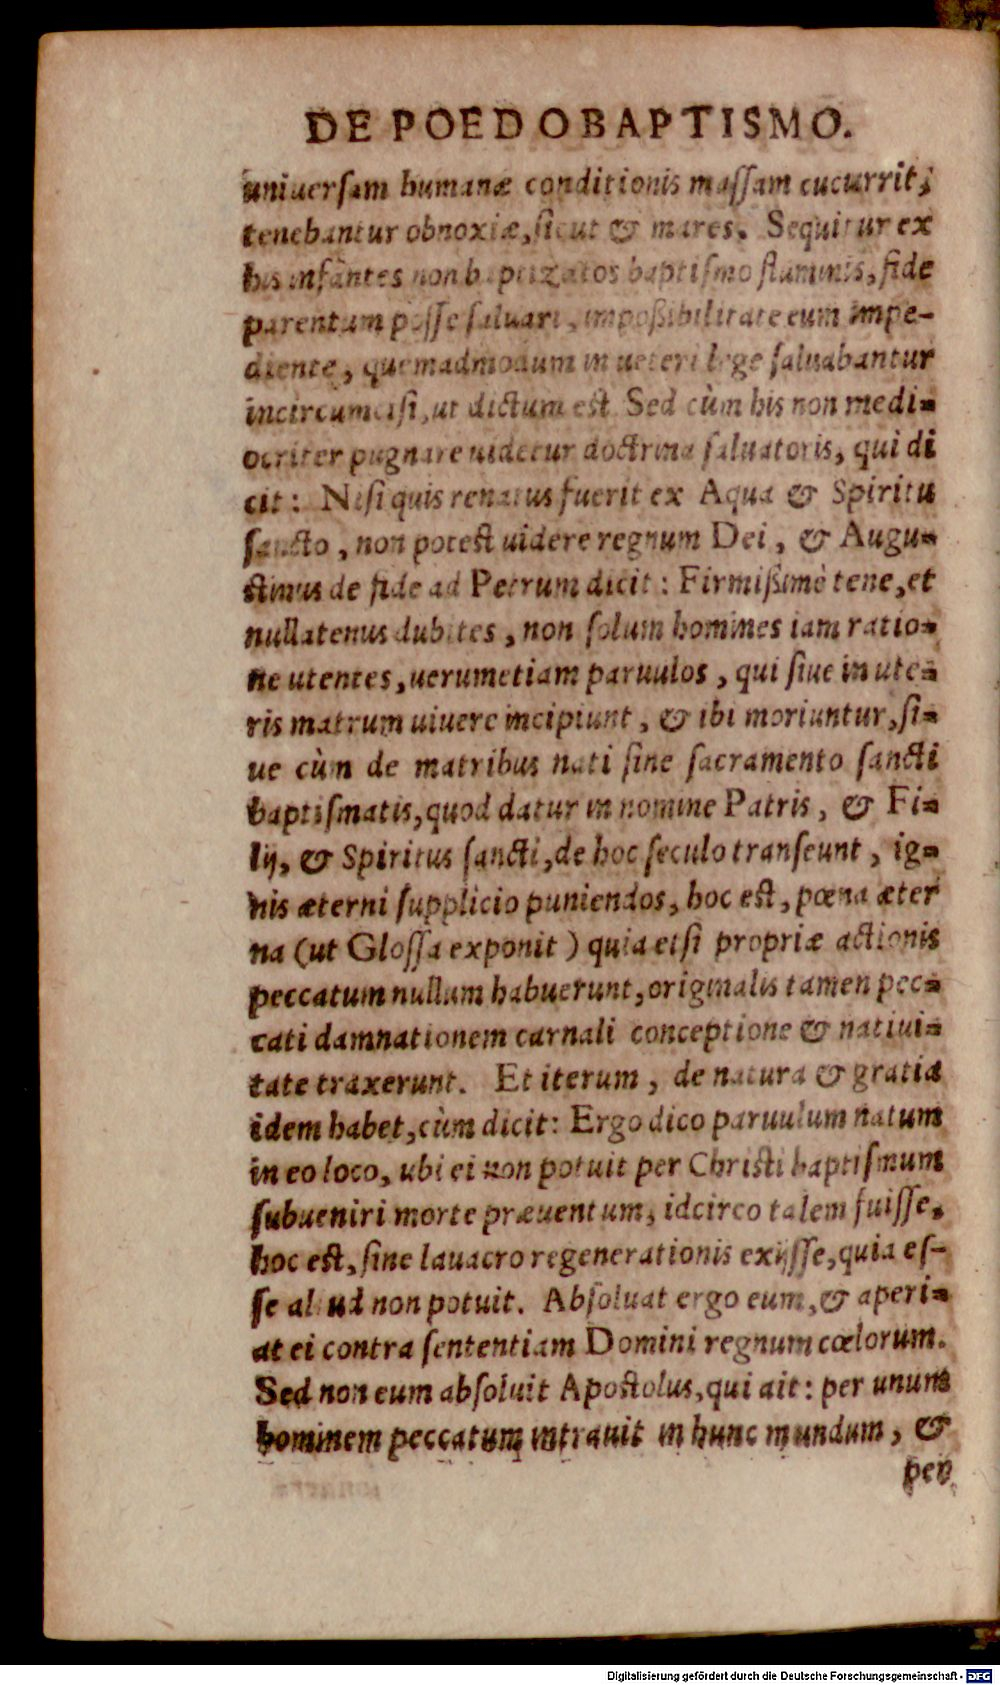 DE POEDOBAPTISMO.
uniuersam humanæ conditionis massam cucurrit;
tenebantur obnoxiæ, sicut & mares. Sequitur ex
his infantes non baptizatos baptismo flaminis, fide
parentum posse saluari, impoßibilitate eum impe-
diente, quemadmodum in ueteri lege saluabantur
incircumcisi, ut dictum est. Sed cùm his non medi=
ocriter pugnare uidetur doctrina saluatoris, qui di
cit: Nisi quis renatus fuerit ex Aqua & Spiritu
sancto, non potest uidere regnum Dei, & Augu=
stinus de fide ad Petrum dicit: Firmißimè tene, et
nullatenus dubites, non solum homines iam ratio=
ne utentes, uerumetiam paruulos, qui siue in ute=
ris matrum uiuere incipiunt, & ibi moriuntur, si=
ue cùm de matribus nati sine sacramento sancti
baptismatis, quod datur in nomine Patris, & Fi=
lij, & Spiritus sancti, de hoc seculo transeunt, ig=
nis æterni supplicio puniendos, hoc est, pœna æter
na (ut Glossa exponit) quia etsi propriæ actionis
peccatum nullum habuerunt, originalis tamen pec=
cati damnationem carnali conceptione & natiui=
tate traxerunt. Et iterum, de natura & gratia
idem habet, cùm dicit: Ergo dico paruulum natum
in eo loco, ubi ei non potuit per Christi baptismum
subueniri morte præuentum, idcirco talem fuisse,
hoc est, sine lauacro regenerationis exijsse, quia es-
se aliud non potuit. Absoluat ergo eum, & aperi=
at ei contra sententiam Domini regnum cœlorum.
Sed non eum absoluit Apostolus, qui ait: per unum
hominem peccatum intrauit in hunc mundum, &
per
Digitalisierung gefördert durch die Deutsche Forschungsgemeinschaft - DFG